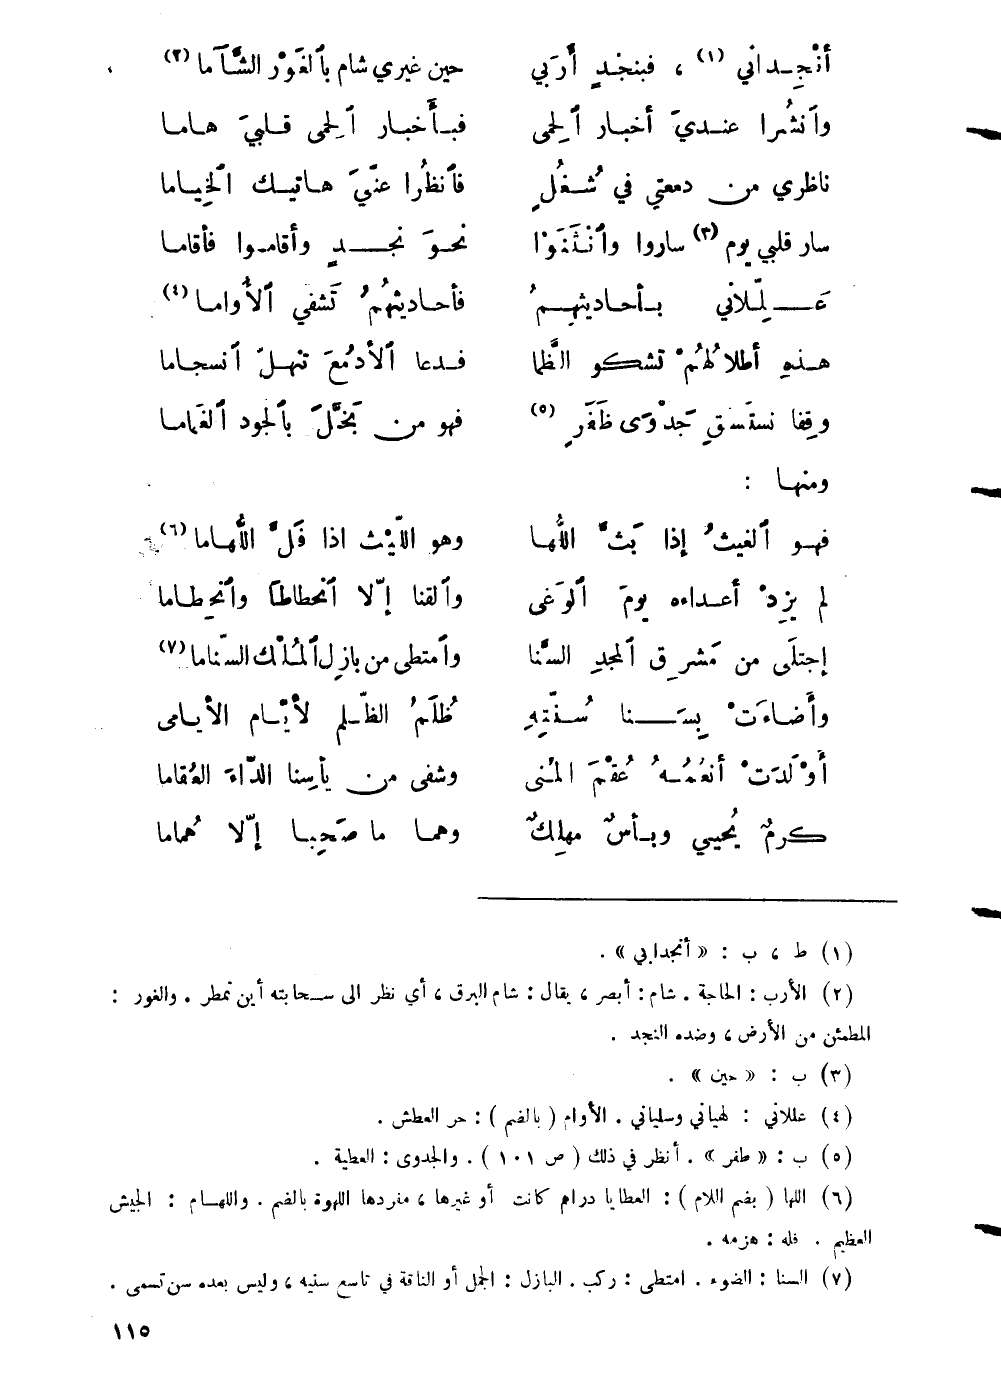 أنْجِدانِي (١) ، فبنجْدٍ أَرَبي حين غيري شام بٱلغَوْر الشَّآما (٢)
وٱنشُرا عنديَ أخبار ٱلحِمى فبأَخبار ٱلحِمى قلبيَ هاما
ناظري من دمعتي في شُغُلٍ فٱنظُرا عنّيَ هاتيك ٱلخِياما
سار قلبي يوم (٣) ساروا وٱنْثَنَوْا نحوَ نجدٍ وأقاموا فأقاما
عَلِّلاني بأحاديثِهِمُ فأحاديثُهُمُ تَشفي ٱلأُواما (٤)
هذهِ أطلالُهُمْ تشكو الظَّما فدعا ٱلأدمُعَ تنهلّ ٱنسجاما
وقِفا نستَسْقِ جَدْوَى ظَفَرٍ (٥) فهو من بَخَّلَ بٱلجود ٱلغَماما
ومنها :
فهو ٱلغيثُ إذا بَثَّ اللُّها وهو اللَّيْث اذا فَلَّ اللُّهاما (٦)
لم يزِدْ أعداءه يومَ ٱلوَغى وٱلقنا إلّا ٱنحطاطاً وٱنحِطاما
إجتلَى من مَشرِق ٱلمجدِ السَّنا وٱمتطى من بازِلِ ٱلمُلْك السّناما (٧)
وأضاءَتْ بِسَنا سُنّتِهِ ظُلَمُ الظّلم لأيّام الأيامى
أوْلَدَتْ أنعُمُهُ عُقْمَ المُنى وشفى من يأسِنا الدّاءَ العُقاما
كرمٌ يُحيي وبأسٌ مهلِكٌ وهما ما صَحِبا إلّا هُماما
(١) ط ، ب : « أنجدابي » .
(٢) الأرب : الحاجة . شام : أبصر ، يقال : شام البرق ، أي نظر الى سحابته أين تمطر . والغور :
المطمئن من الأرض ، وضده النجد .
(٣) ب : « حين » .
(٤) عللاني : لهياني وسلياني . الأوام ( بالضم ) : حر العطش .
(٥) ب : « طفر » . أنظر في ذلك ( ص ١٠١ ) . والجدوى : العطية .
(٦) اللها ( بضم اللام ) : العطايا دراهم كانت أو غيرها ، مفردها اللهوة بالضم . واللهام : الجيش
العظيم . فله : هزمه .
(٧) السنا : الضوء . امتطى : ركب . البازل : الجمل أو الناقة في تاسع سنيه ، وليس بعده سن تسمى .
١١٥